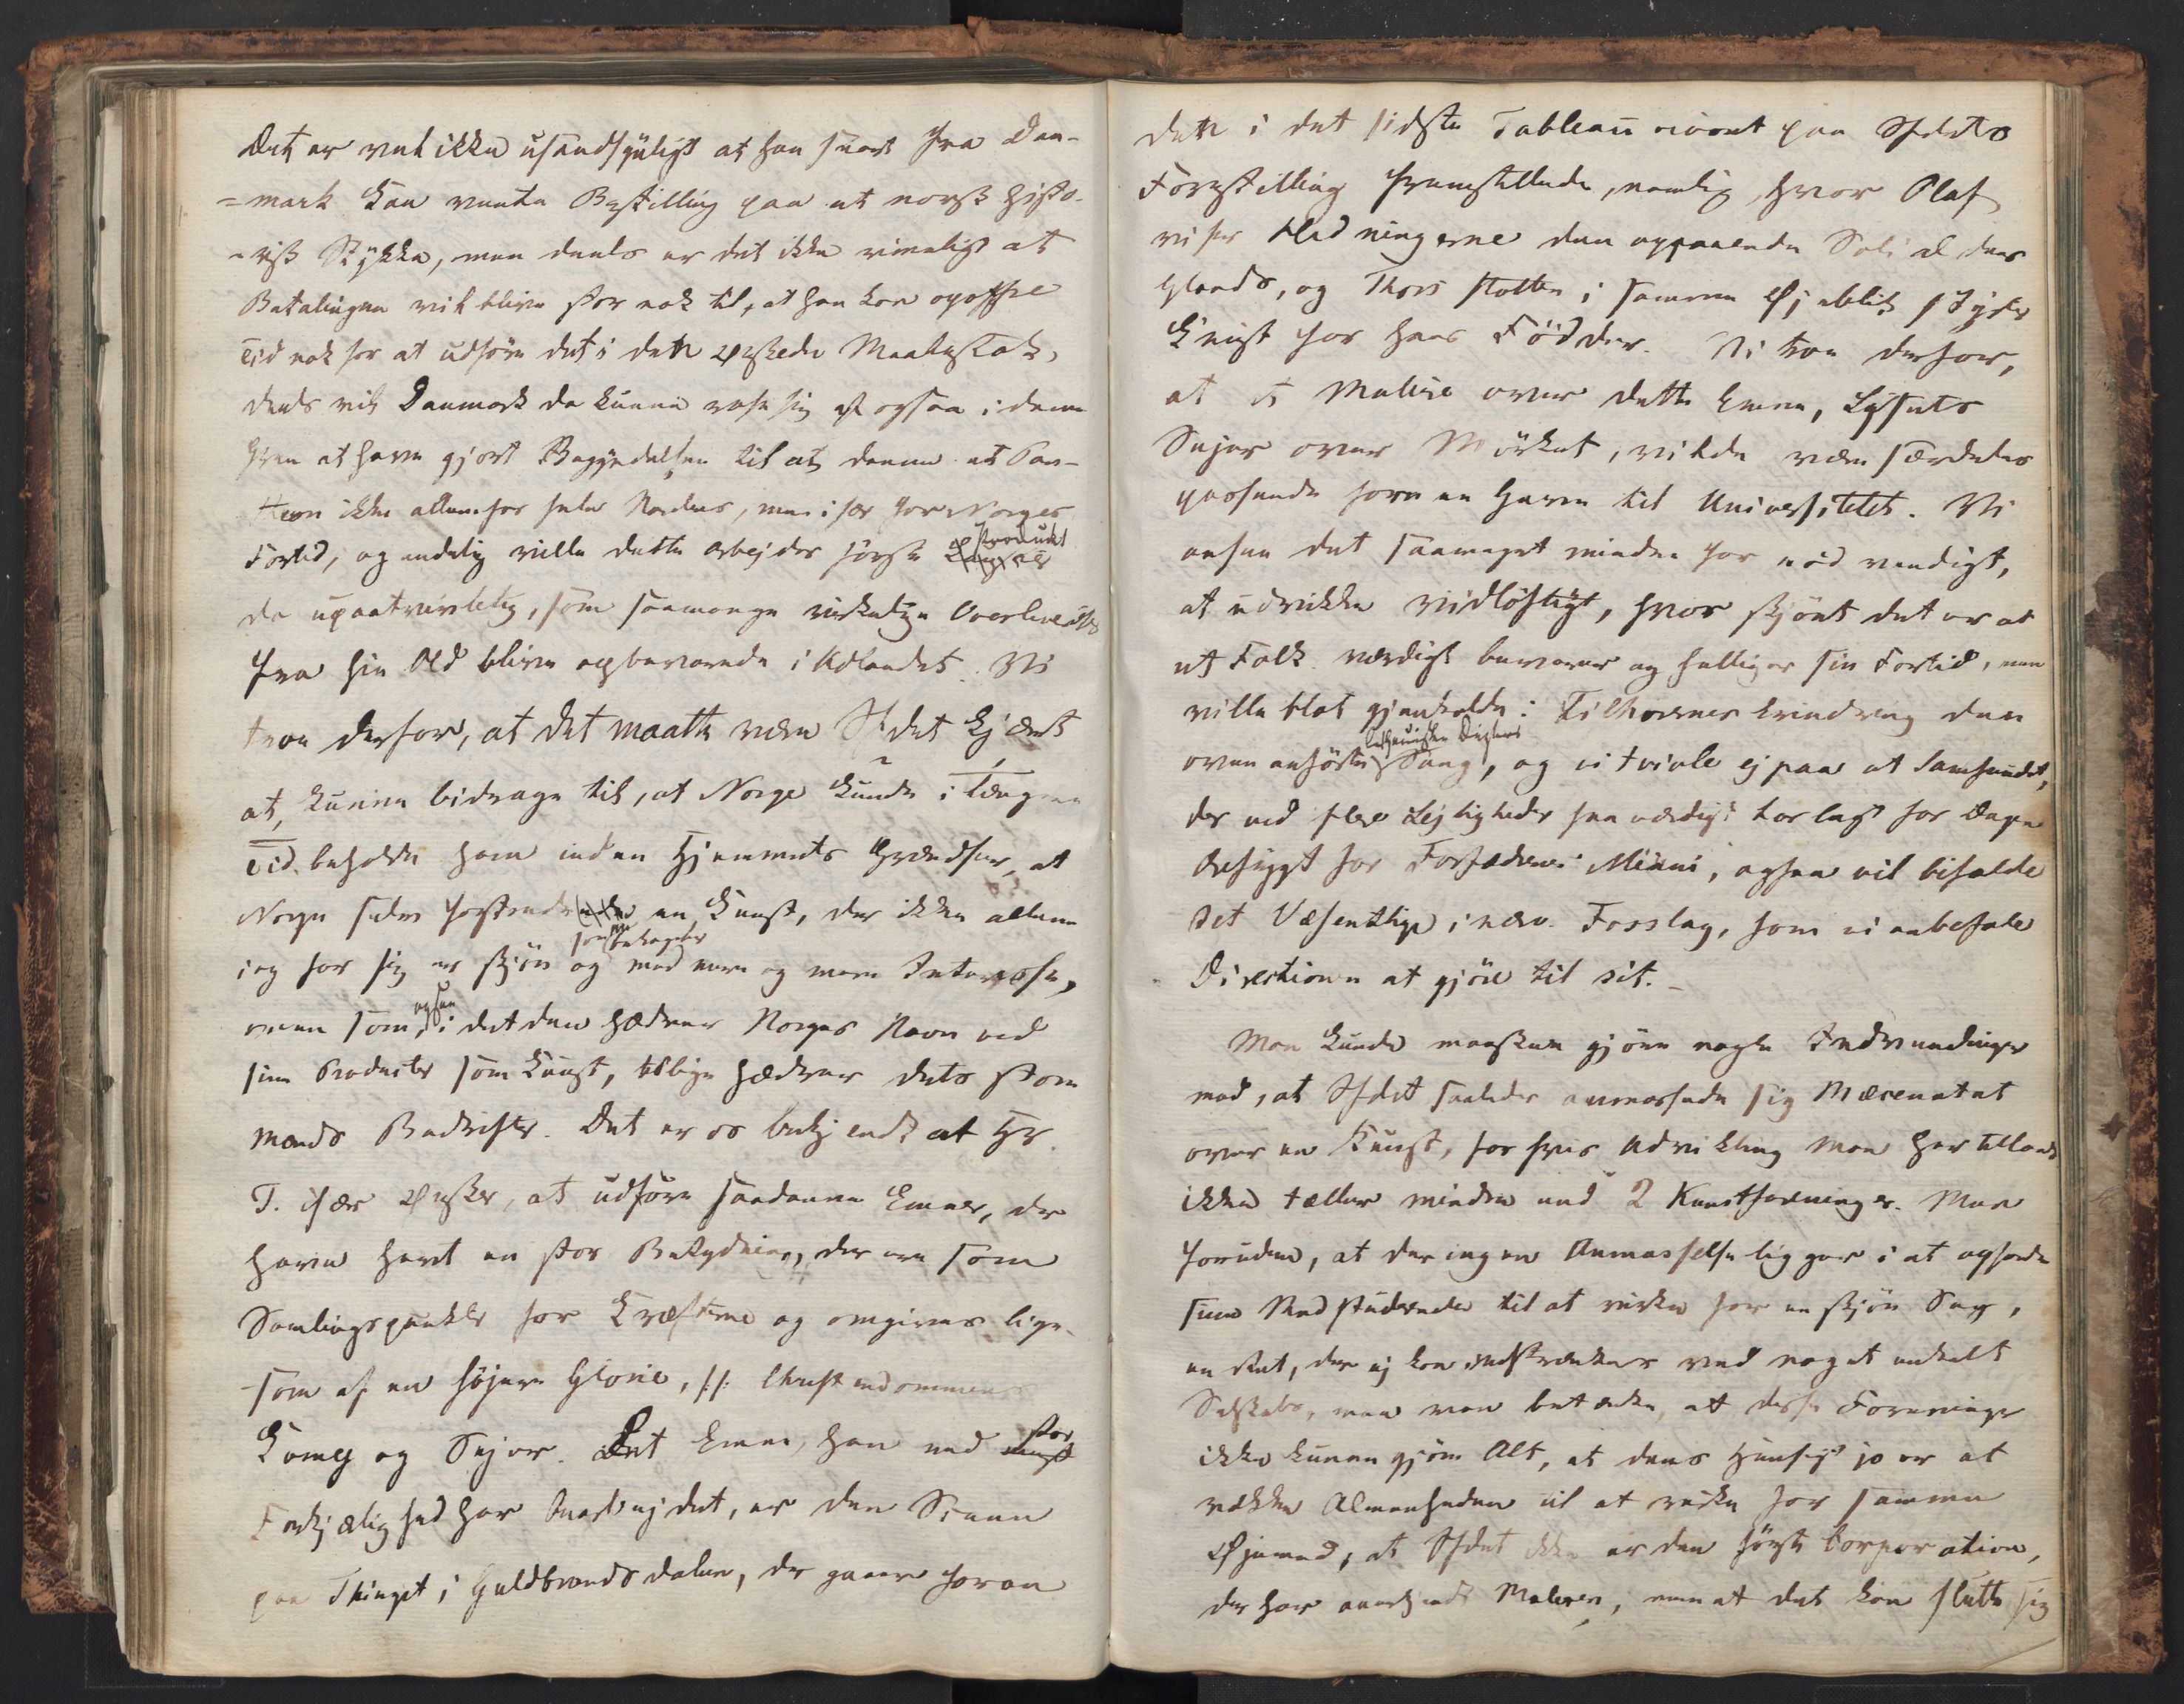 Det er vel ikke usandsynligt at han snart fra Dan-
=mark kan vente Bestilling paa et norsk histo-
=risk Stykke, men deels er det ikke rimeligt at
Betalingen vil blive stor nok til, at han kan opoffre
Tid nok for at udføre det i dette ønskede Maalestok,
deels vil Danmark da kunne rose sig af ogsaa i denne
Green at have gjort Begyndelsen til at danne et Pan-
theon ikke allene for hele Norden, men især for Norges
Fortid, og endelig ville dette Arbejdes første Produkt
da upaatvivlelig, som saamange vigtige Overleveringer
fra hin Old blive opbevarede i Udlandet. Vi
troe derfor, at det maatte være Sfdet kjært
at kunne bidrage til, at Norge kunde i længere
Tid beholde ham inden Hjemmets Grændser, at
Norge selv fostrede en Kunst, der ikke allene
i og for sig er skjøn og som behages med mere og mere Interesse,
men som ogsaa i det den hædrer Norges Navn ved
sine Producter som Kunst, tillige hædrer dets store
Mænds Bedrifter. Det er os bekjendt at Hr.
T. især ønsker, at udføre saadanne Emner, der
have havt en stor Betydning, der ere som
Samlingspunkter for Kræfterne og omgives lige-
som af en højere Glorie, f. E. Christendommens
Kamp og Sejer. Det Emne, han med stor
Forkjærlighed har bearbejdet, er den Scene
paa Thinget i Guldbrandsdalen, der gaaer foran
dette i det sidste Tableau vivant paa Sfdets
Forestilling fremstillede, nemlig, hvor Olaf
viser Hedningerne den opgaaende Sol i al dens
Glands, og Thors Støtte i samme Øjeblik styrter
knust for hans Fødder. Vi troe derfor,
at et Malerie over dette Emne, Lysets
Sejer over Mörket, vilde være særdeles
passende som en Gave til Universitetet. Vi
ansee det saameget mindre for nödvendigt,
at udvikle vidløftigt, hvor skjönt det er at
et Folk værdigt bevarer og helliger sin Fortid, men
ville blot gjenkalde i Tilhørernes Erindring den
oven anførte Digters Sang, og vi tvivle ej paa at Samfundet,
der ved flere Lejligheder saa værdigt har lagt for Dagen
Ærefrygt for Forfædrenes Minni, ogsaa vil bifalde
det Væsentlige i nærv. Forslag, som vi anbefale
Directionen at gjöre til sit. _
Man kunde maaskee gjöre nogle Indvendinger
mod, at Sfdet saaledes anmassede sig Mæcenatet
over en Kunst, for hvis Udvikling man her tillands
ikke tæller mindre end 2 Kunstforeninger. Men
foruden, at der ingen Anmasselse ligger i at opfordre
sine Medstuderende til at virke for en skjön Sag,
en Ret, der ej kan indskrænkes ved noget enkelt
Selskab, maa man betænke, at disse Foreninger
ikke kunne gjöre Alt, at deres Hensigt jo er at
vække Almenheden til at virke for samme
Øjemed, at Sfdet ikke er den første Corporation,
der har anerkjendt Maleren, men at det kan slutte sig